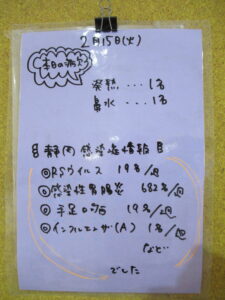 2月15日(火)
本日の病欠
発熱 ... 1名
鼻水 ... 1名
静岡 感染症情報
◎RSウイルス 19名/週
◎感染性胃腸炎 682名/週
◎手足口病 19名/週
◎インフルエンザ(A) 1名/週
など
でした